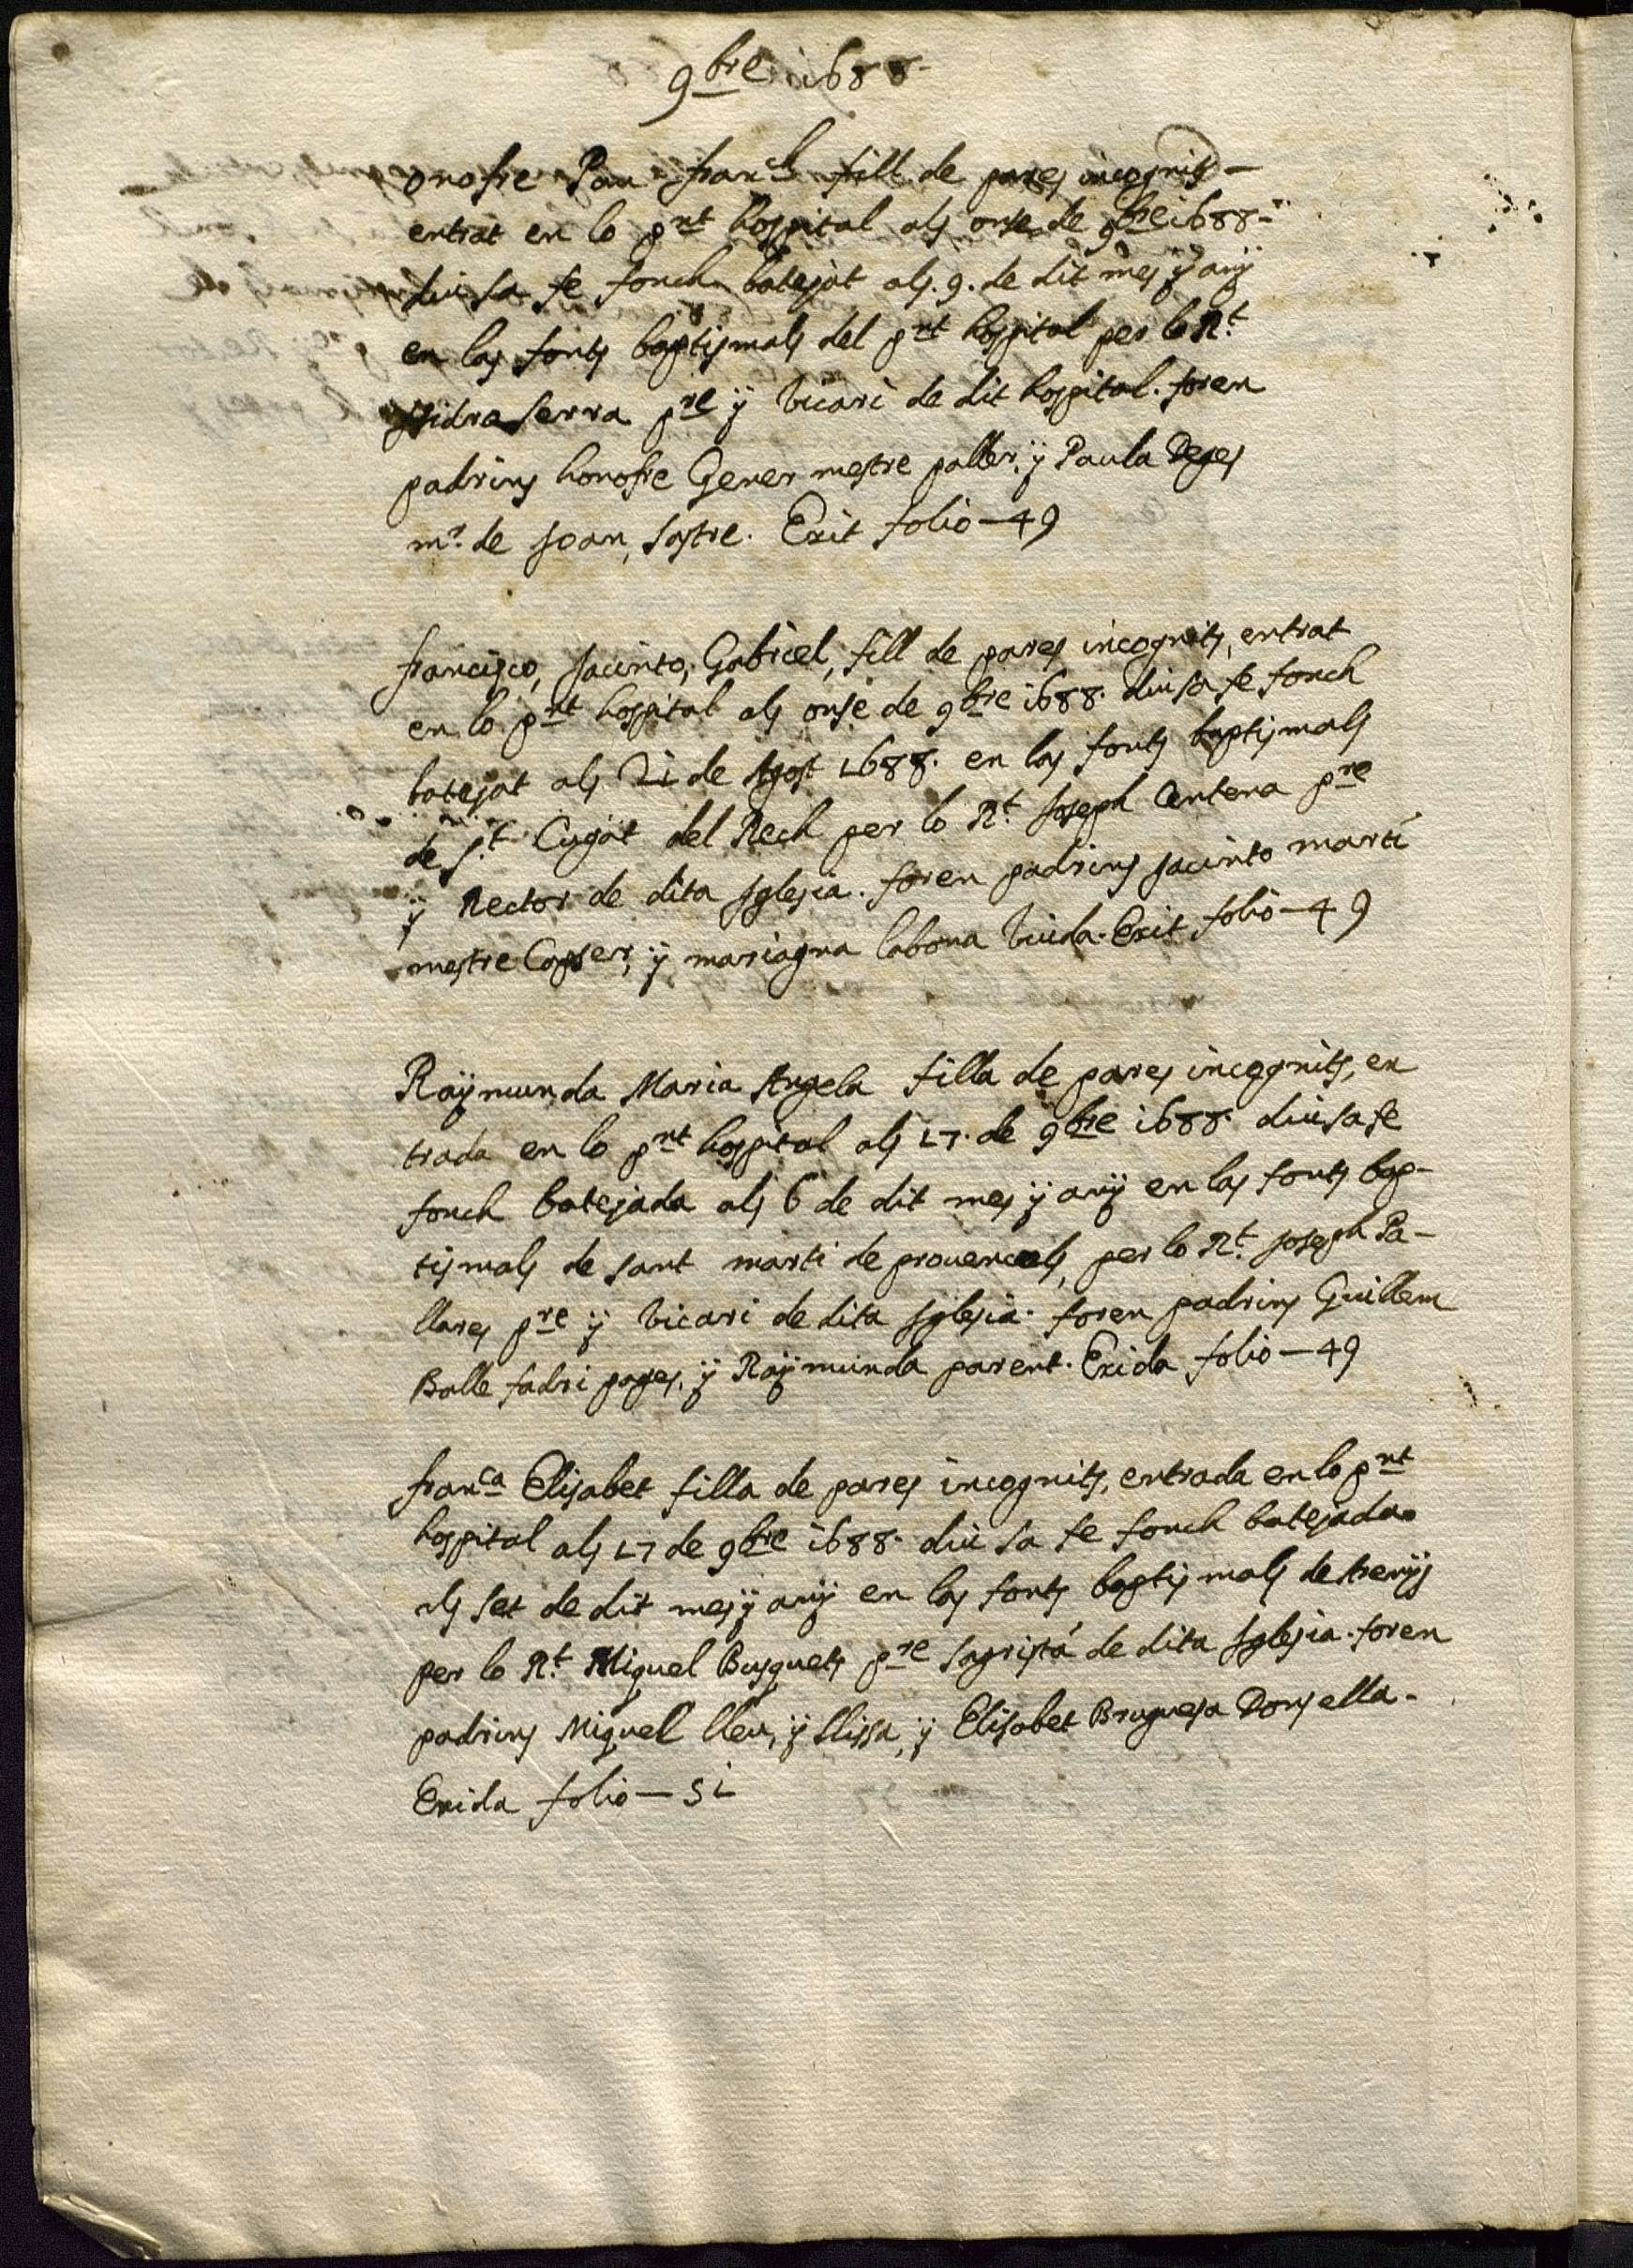 9bre 1688
onofre Pau franch fill de pares incognits
entrat en lo pnt hospital als onse de 9bre 1688
diu sa se fonch batejat als 9. de dit mes ÿ anÿ
en las fonts baptismals del pnt hospital per lo Rt.
Isidro Serra pre ÿ vicari de dit hospital. foren
padrins honofre Gener mestre paller, ÿ Paula
mr. de Joan, sastre. Exit folio — 49
francisco, Jacinto, Gabriel, fill de pares incognits, entrat
en lo pnt hospital als onse de 9bre 1688. diu sa se fonch
batejat als 21 de Agost 1688. en las fonts baptismals
de St. Cugat del Rech per lo Rt. Joseph Antena pre
ÿ Rector de dita Iglesia. foren padrins Jacinto martí
mestre Capser, ÿ mariagna labona viuda. Exit folio — 49
Raÿmunda Maria Angela filla de pares incognits, en
trada en lo pnt hospital als 17. de 9bre 1688. diu sa se
fonch batejada als 6 de dit mes ÿ anÿ en las fonts bap-
tismals de sant marti de prouensals, per lo Rt. Joseph Pa-
llares pre ÿ vicari de dita Iglesia. foren padrins Guillem
Balle fadri pages, ÿ Raÿmunda parent. Exida folio — 49
franca Elisabet filla de pares incognits, entrada en lo pnt
hospital als 17 de 9bre 1688. diu sa se fonch batejada
als set de dit mes ÿ anÿ en las fonts baptismals de
per lo Rt. Miquel Busquets pre sagristá de dita Iglesia. foren
padrins Miquel lleu, ÿ llissa, ÿ Elisabet Bruguesa Donsella.
Exida folio — 51